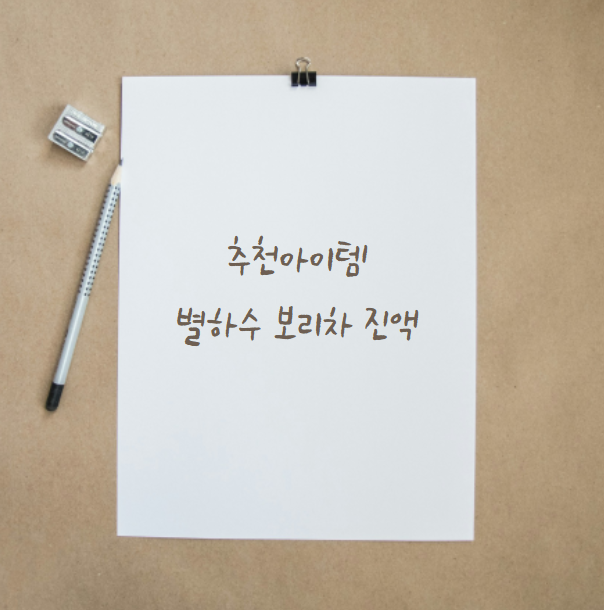 추천아이템
별하수 보리차 진액